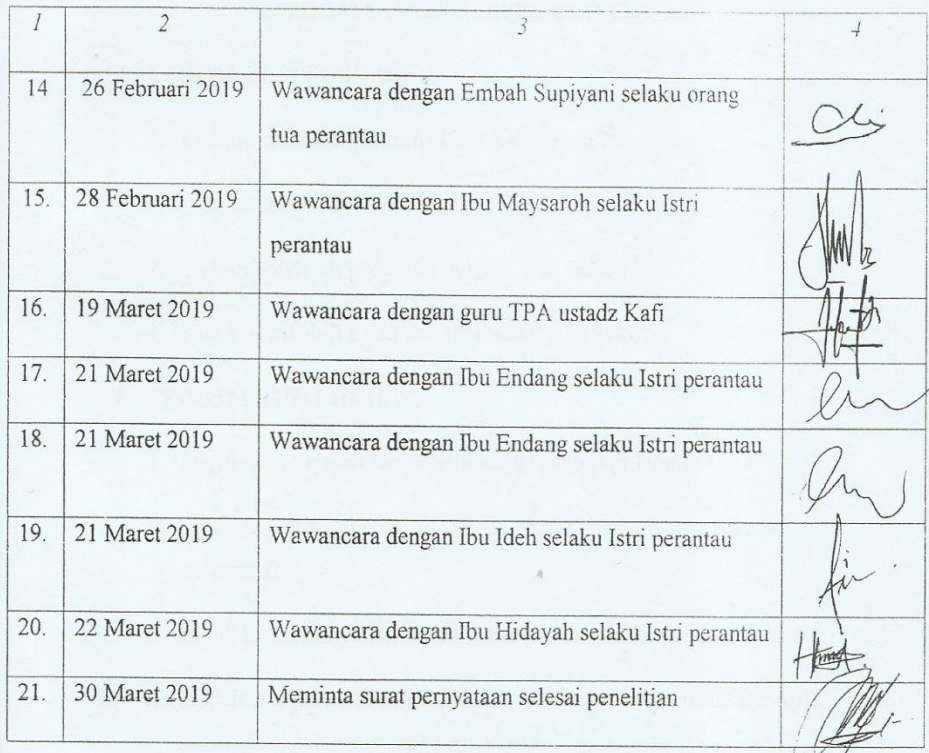 1 2 3 4
14 26 Februari 2019 Wawancara dengan Embah Supiyani selaku orang
tua perantau
15. 28 Februari 2019 Wawancara dengan Ibu Maysaroh selaku Istri
perantau
16. 19 Maret 2019 Wawancara dengan guru TPA ustadz Kafi
17. 21 Maret 2019 Wawancara dengan Ibu Endang selaku Istri perantau
18. 21 Maret 2019 Wawancara dengan Ibu Endang selaku Istri perantau
19. 21 Maret 2019 Wawancara dengan Ibu Ideh selaku Istri perantau
20. 22 Maret 2019 Wawancara dengan Ibu Hidayah selaku Istri perantau
21. 30 Maret 2019 Meminta surat pernyataan selesai penelitian